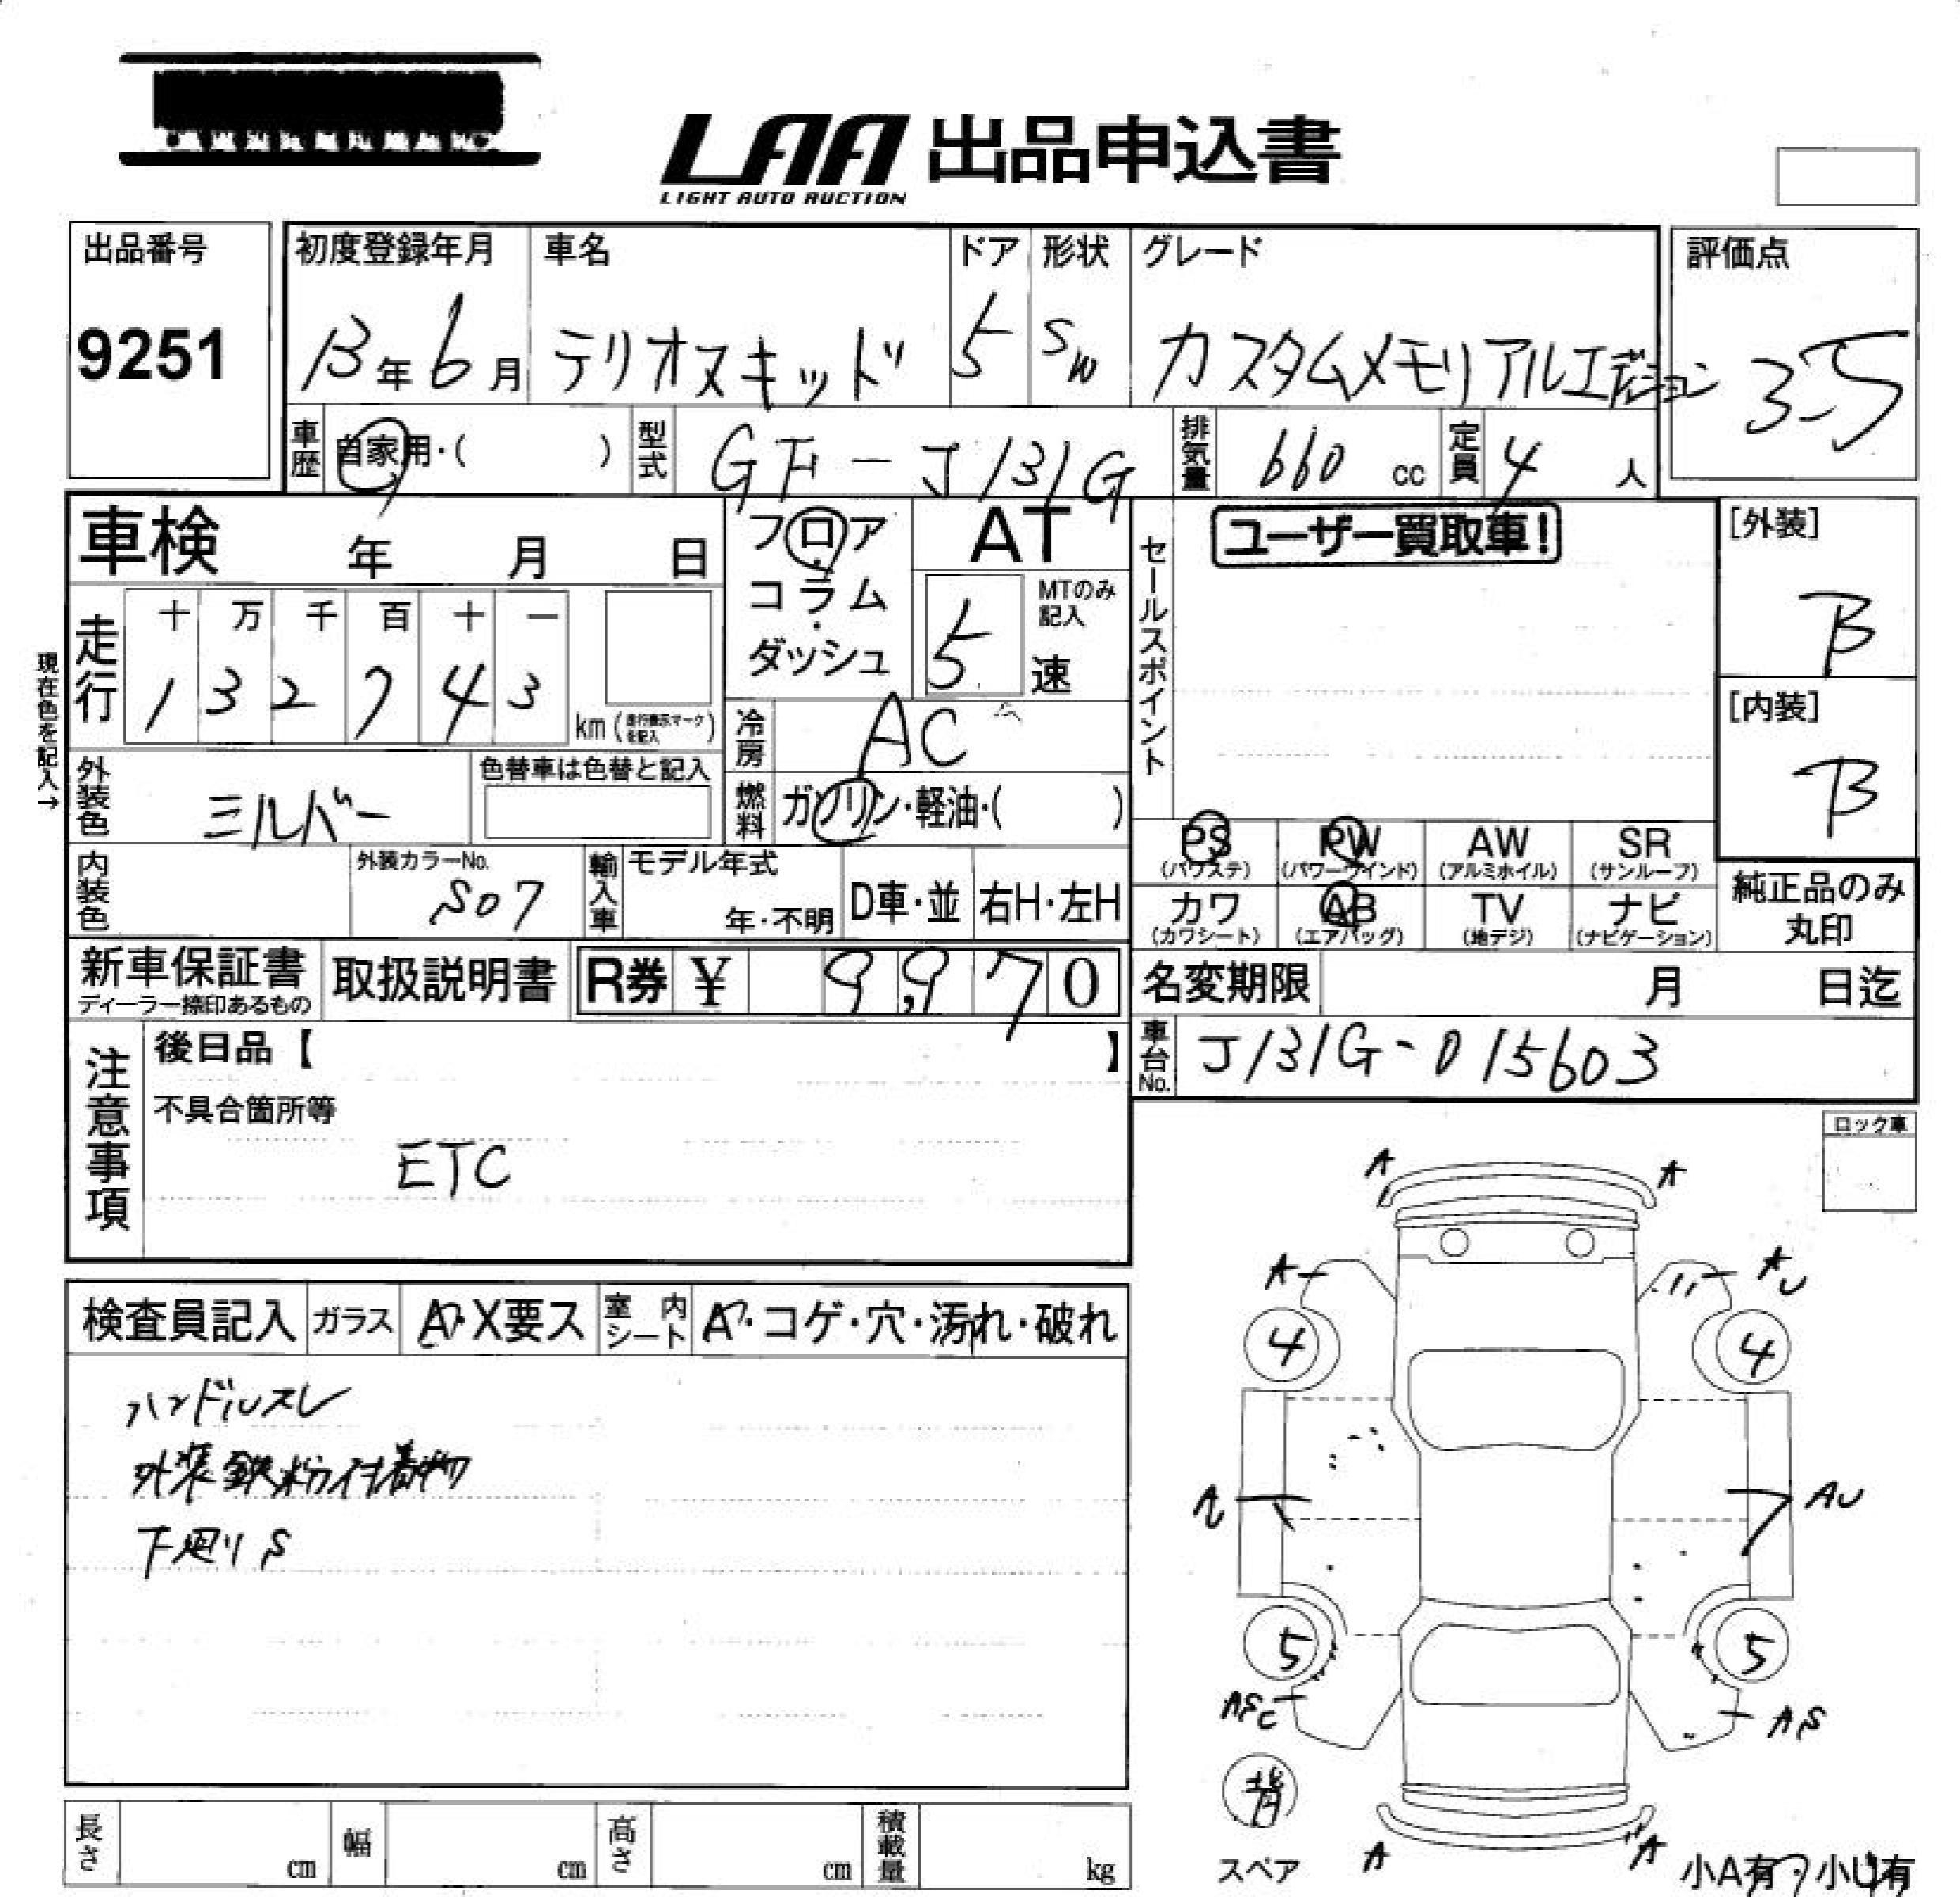 LAA 出品申込書
LIGHT AUTO AUCTION
出品番号
9251
初度登録年月
13年6月
車名
テリオスキッド
ドア
5
形状
SW
グレード
カスタムメモリアルエディション
評価点
3.5
車歴
自家用・( )
型式
GF-J131G
排気量
660 cc
定員
4 人
車検 年 月 日
フロア・コラム・ダッシュ
AT
MTのみ記入
5 速
セールスポイント
ユーザー買取車!
[外装]
B
[内装]
B
現在色を記入→
走行
十 万 千 百 十 一
1 3 2 7 4 3
km (走行表示マークを記入)
冷房
AC
外装色
シルバー
色替車は色替と記入
燃料
ガソリン・軽油・( )
PS (パワステ)
PW (パワーウインド)
AW (アルミホイル)
SR (サンルーフ)
カワ (カワシート)
AB (エアバッグ)
TV (地デジ)
ナビ (ナビゲーション)
純正品のみ丸印
内装色
外装カラーNo.
S07
輸入車
モデル年式
年・不明
D車・並
右H・左H
新車保証書
ディーラー捺印あるもの
取扱説明書
R券 ¥ 9,970
名変期限 月 日迄
車台No.
J131G-015603
注意事項
後日品【 】
不具合箇所等
ETC
ロック車
検査員記入
ガラス
A・X要ス
室内シート
A・コゲ・穴・汚れ・破れ
ハンドルスレ
外装鉄粉付着物
下廻りS
A A
A AU
4 4
AU
5 5
AS
背
スペア
A A
小A有・小U有
長さ cm
幅 cm
高さ cm
積載量 kg